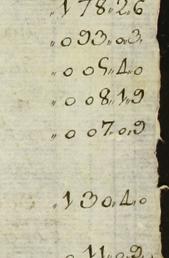 „178„26
„093„03
„005„40
„008„19
„007„09
„130„40
„011„09